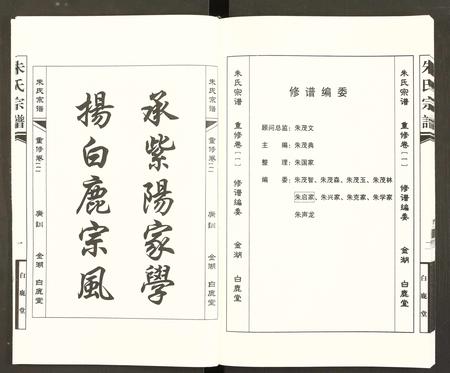 朱氏宗譜
一
白鹿堂
承紫陽家學
揚白鹿宗風
朱氏宗谱
重修卷(一)
廣訓
金湖 白鹿堂
朱氏宗谱
重修卷(一)
修谱编委
金湖
白鹿堂
修谱编委
顾问总监：朱茂文
主 编：朱茂典
整 理：朱国家
编 委：朱茂智、朱茂森、朱茂玉、朱茂林
朱启家、朱兴家、朱克家、朱学家
朱声龙
朱氏宗谱
重修卷(一)
修谱编委
金湖
白鹿堂
朱氏宗譜
白鹿堂